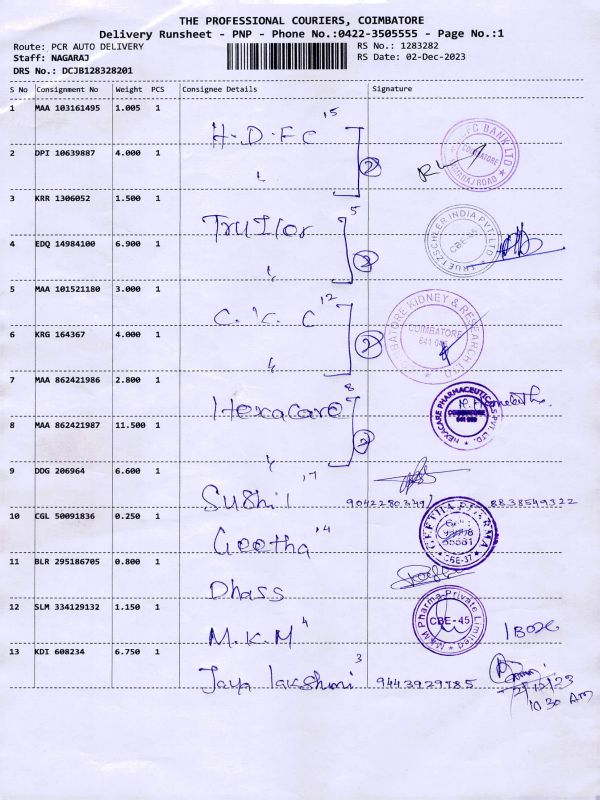 THE PROFESSIONAL COURIERS, COIMBATORE
Delivery Runsheet - PNP - Phone No.:0422-3505555 - Page No.:1
Route: PCR AUTO DELIVERY
RS No.: 1283282
Staff: NAGARAJ
RS Date: 02-Dec-2023
DRS No.: DCJB128328201
S No Consignment No Weight PCS Consignee Details Signature
1 MAA 103161495 1.005 1
H.D.F.C 15
2 DPI 10639887 4.000 1
2
BANK LTD
COIMBATORE
3 KRR 1306052 1.500 1
5
4 EDQ 14984100 6.900 1
2
TRUETZSCHLER INDIA PVT. LTD
5 MAA 101521180 3.000 1
C.K.C 12
6 KRG 164367 4.000 1
2
KIDNEY & RESEARCH
COIMBATORE
641 045
7 MAA 862421986 2.800 1
Hexacare 8
8 MAA 862421987 11.500 1
2
HEXACARE PHARMACEUTICALS PVT. LTD.
COIMBATORE
9 DDG 206964 6.600 1
Sushil
8838549322
10 CGL 50091836 0.250 1
Geetha 4
GEETHA PHARMA
CBE-37
11 BLR 295186705 0.800 1
Dhass
12 SLM 334129132 1.150 1
M.K.M 4
Pharma Private Limited
CBE - 45
1 BOX
13 KDI 608234 6.750 1
Jaya lakshmi 3
9443929785
10.30 AM